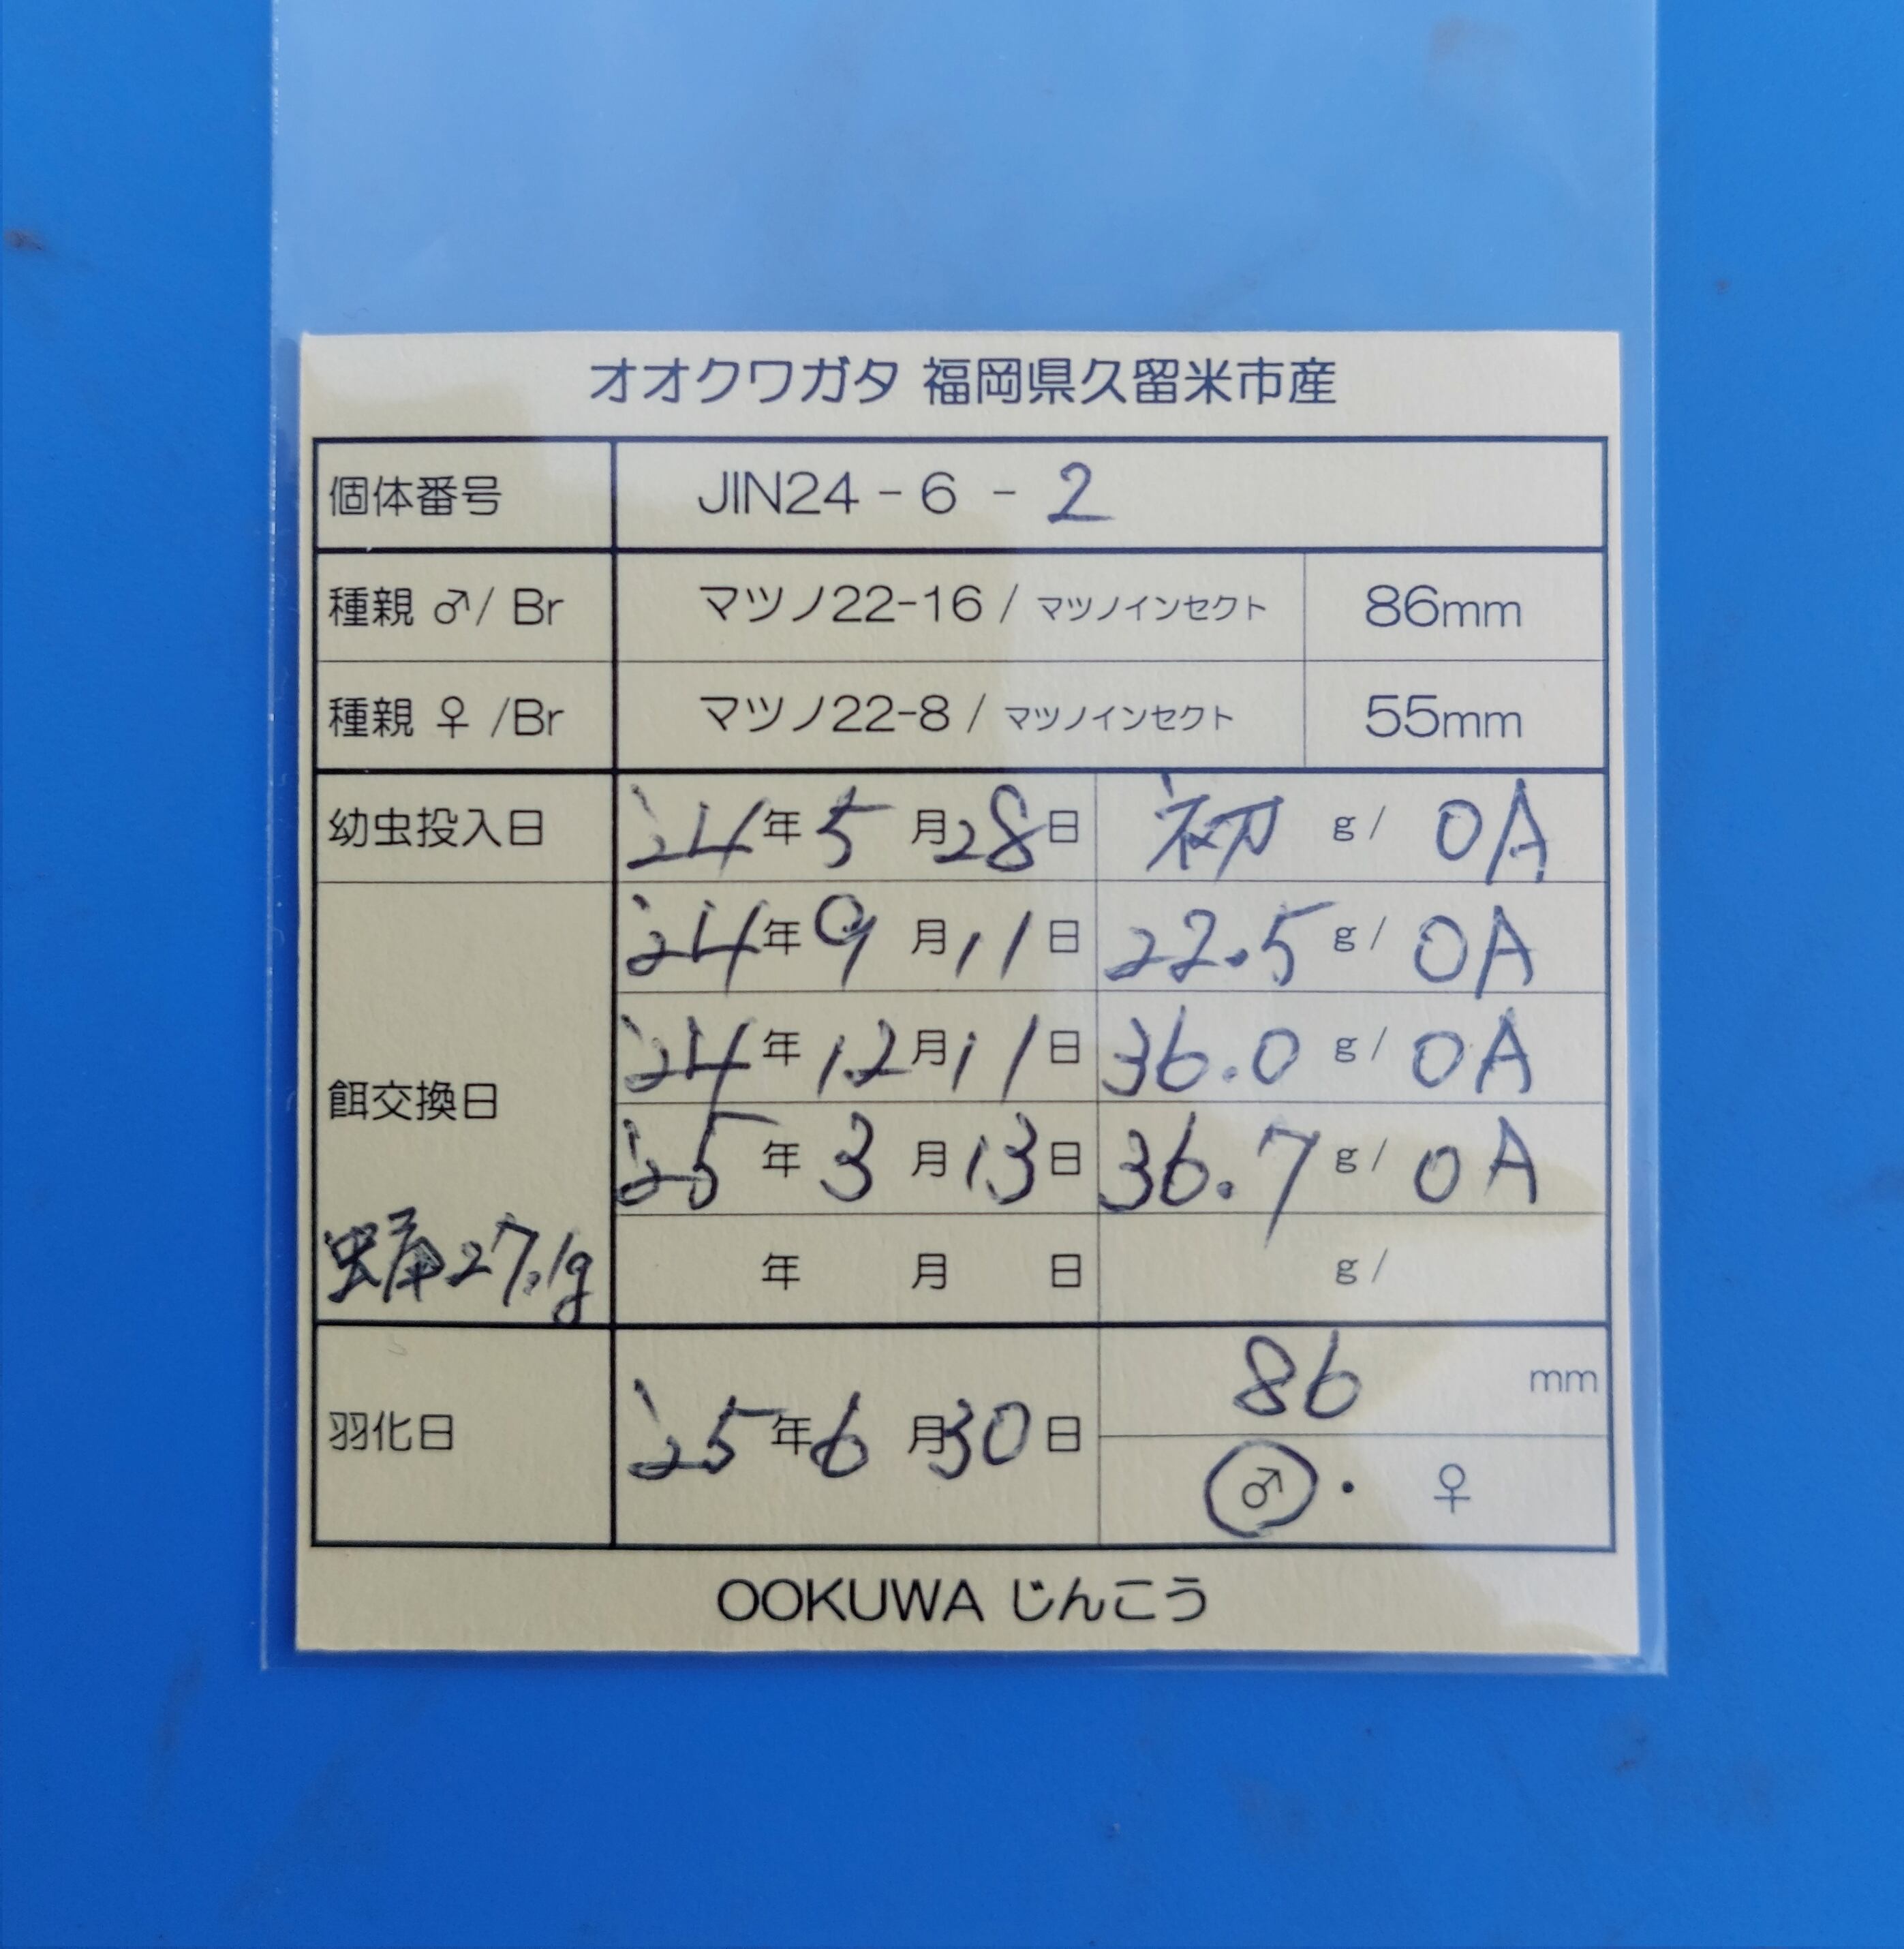 オオクワガタ 福岡県久留米市産
個体番号 JIN24 - 6 - 2
種親 ♂/ Br マツノ22-16 / マツノインセクト 86mm
種親 ♀ /Br マツノ22-8 / マツノインセクト 55mm
幼虫投入日 '24年5月28日 初 g/ OA
'24年9月11日 22.5g/ OA
'24年12月11日 36.0g/ OA
餌交換日
'25年3月13日 36.7g/ OA
蛹27.1g 年 月 日 g/
86 mm
羽化日 '25年6月30日
♂・♀
OOKUWA じんこう